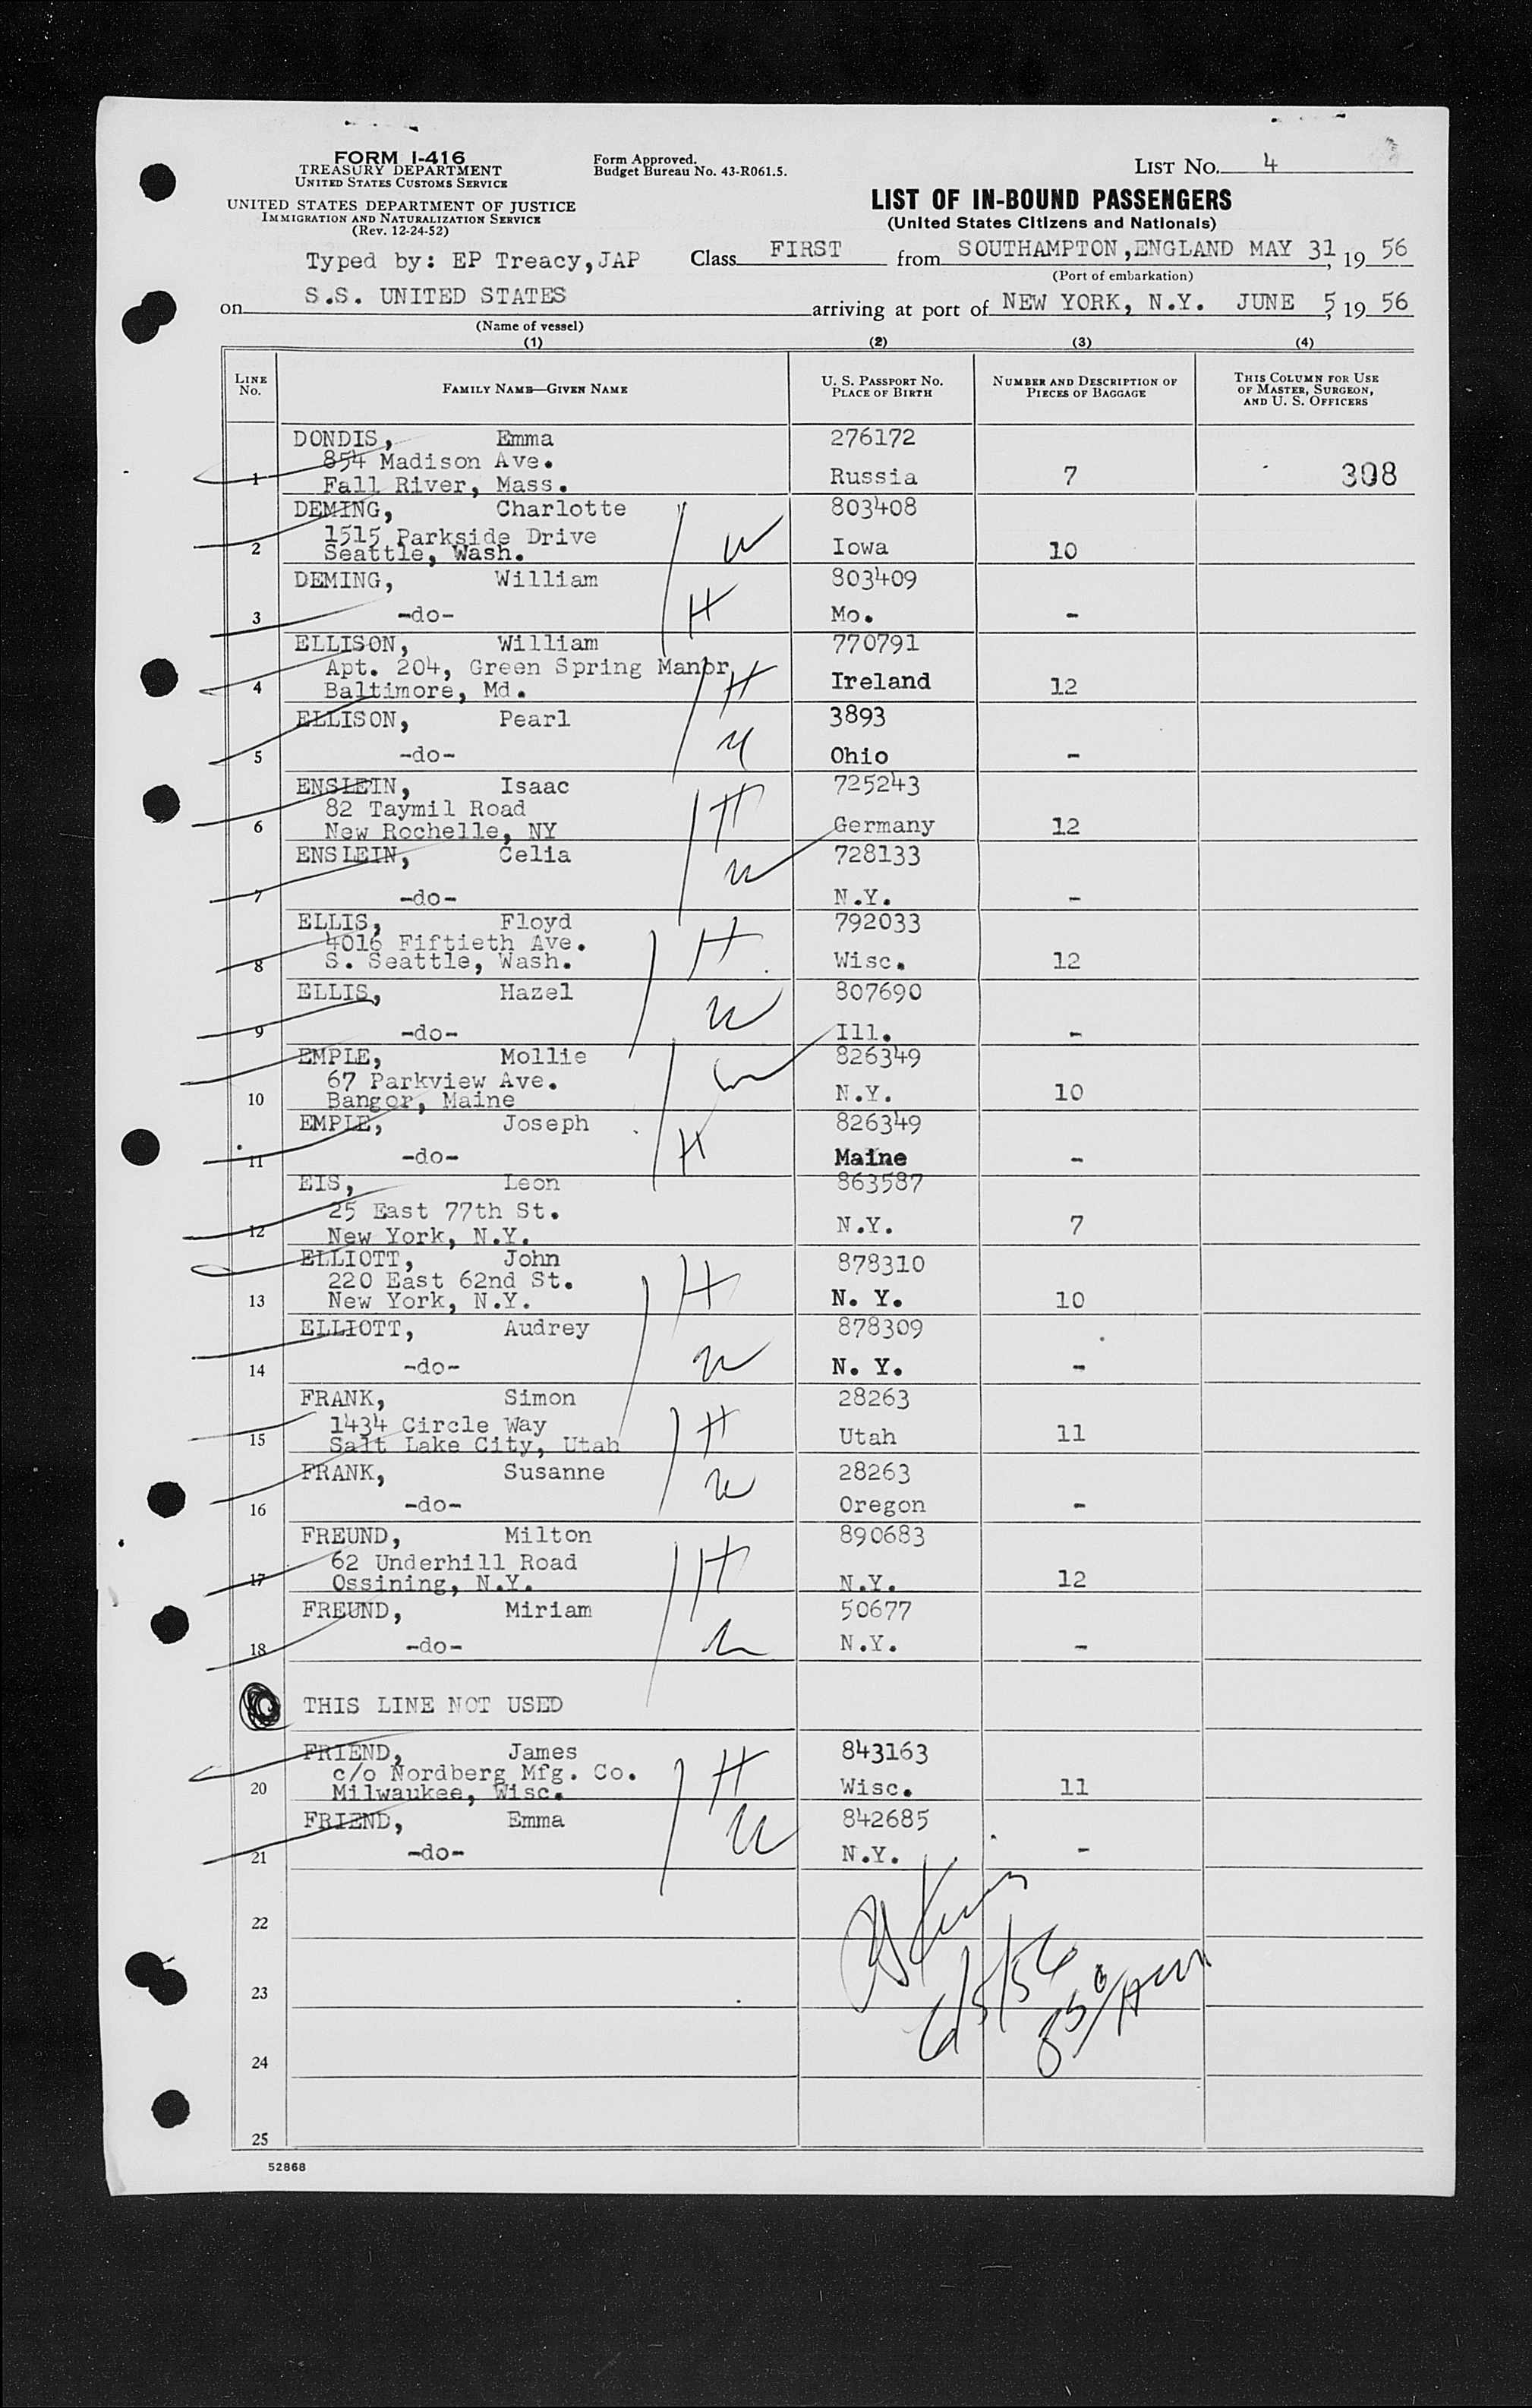 FORM I-416
TREASURY DEPARTMENT
UNITED STATES CUSTOMS SERVICE
UNITED STATES DEPARTMENT OF JUSTICE
IMMIGRATION AND NATURALIZATION SERVICE
(Rev. 12-24-52)
Form Approved.
Budget Bureau No. 43-R061.5.
LIST No. 4
LIST OF IN-BOUND PASSENGERS
(United States Citizens and Nationals)
Typed by: EP Treacy,JAP Class FIRST from SOUTHAMPTON,ENGLAND MAY 31, 19 56
(Port of embarkation)
on S.S. UNITED STATES arriving at port of NEW YORK, N.Y. JUNE 5, 19 56
(Name of vessel)
(1) (2) (3) (4)
LINE No. FAMILY NAME—GIVEN NAME U. S. PASSPORT NO. PLACE OF BIRTH NUMBER AND DESCRIPTION OF PIECES OF BAGGAGE THIS COLUMN FOR USE OF MASTER, SURGEON, AND U. S. OFFICERS
DONDIS, Emma 276172
854 Madison Ave.
1 Fall River, Mass. Russia 7 308
DEMING, Charlotte 803408
1515 Parkside Drive W
2 Seattle, Wash. Iowa 10
DEMING, William 803409
3 -do- H Mo. -
ELLISON, William 770791
Apt. 204, Green Spring Manor
4 Baltimore, Md. H Ireland 12
ELLISON, Pearl 3893
5 -do- W Ohio -
ENSLEIN, Isaac 725243
82 Taymil Road H
6 New Rochelle, NY Germany 12
ENSLEIN, Celia 728133
7 -do- W N.Y. -
ELLIS, Floyd 792033
4016 Fiftieth Ave. H
8 S. Seattle, Wash. Wisc. 12
ELLIS, Hazel 807690
9 -do- W Ill. -
EMPLE, Mollie 826349
67 Parkview Ave. W
10 Bangor, Maine N.Y. 10
EMPLE, Joseph 826349
11 -do- H Maine -
EIS, Leon 863587
25 East 77th St.
12 New York, N.Y. N.Y. 7
ELLIOTT, John 878310
220 East 62nd St. H
13 New York, N.Y. N. Y. 10
ELLIOTT, Audrey 878309
14 -do- W N. Y. -
FRANK, Simon 28263
1434 Circle Way H
15 Salt Lake City, Utah Utah 11
FRANK, Susanne 28263
16 -do- W Oregon -
FREUND, Milton 890683
62 Underhill Road H
17 Ossining, N.Y. N.Y. 12
FREUND, Miriam 50677
18 -do- W N.Y. -
THIS LINE NOT USED
FRIEND, James 843163
c/o Nordberg Mfg. Co. H
20 Milwaukee, Wisc. Wisc. 11
FRIEND, Emma 842685
21 -do- W N.Y. -
22
23 6/5/56
24
25
52868